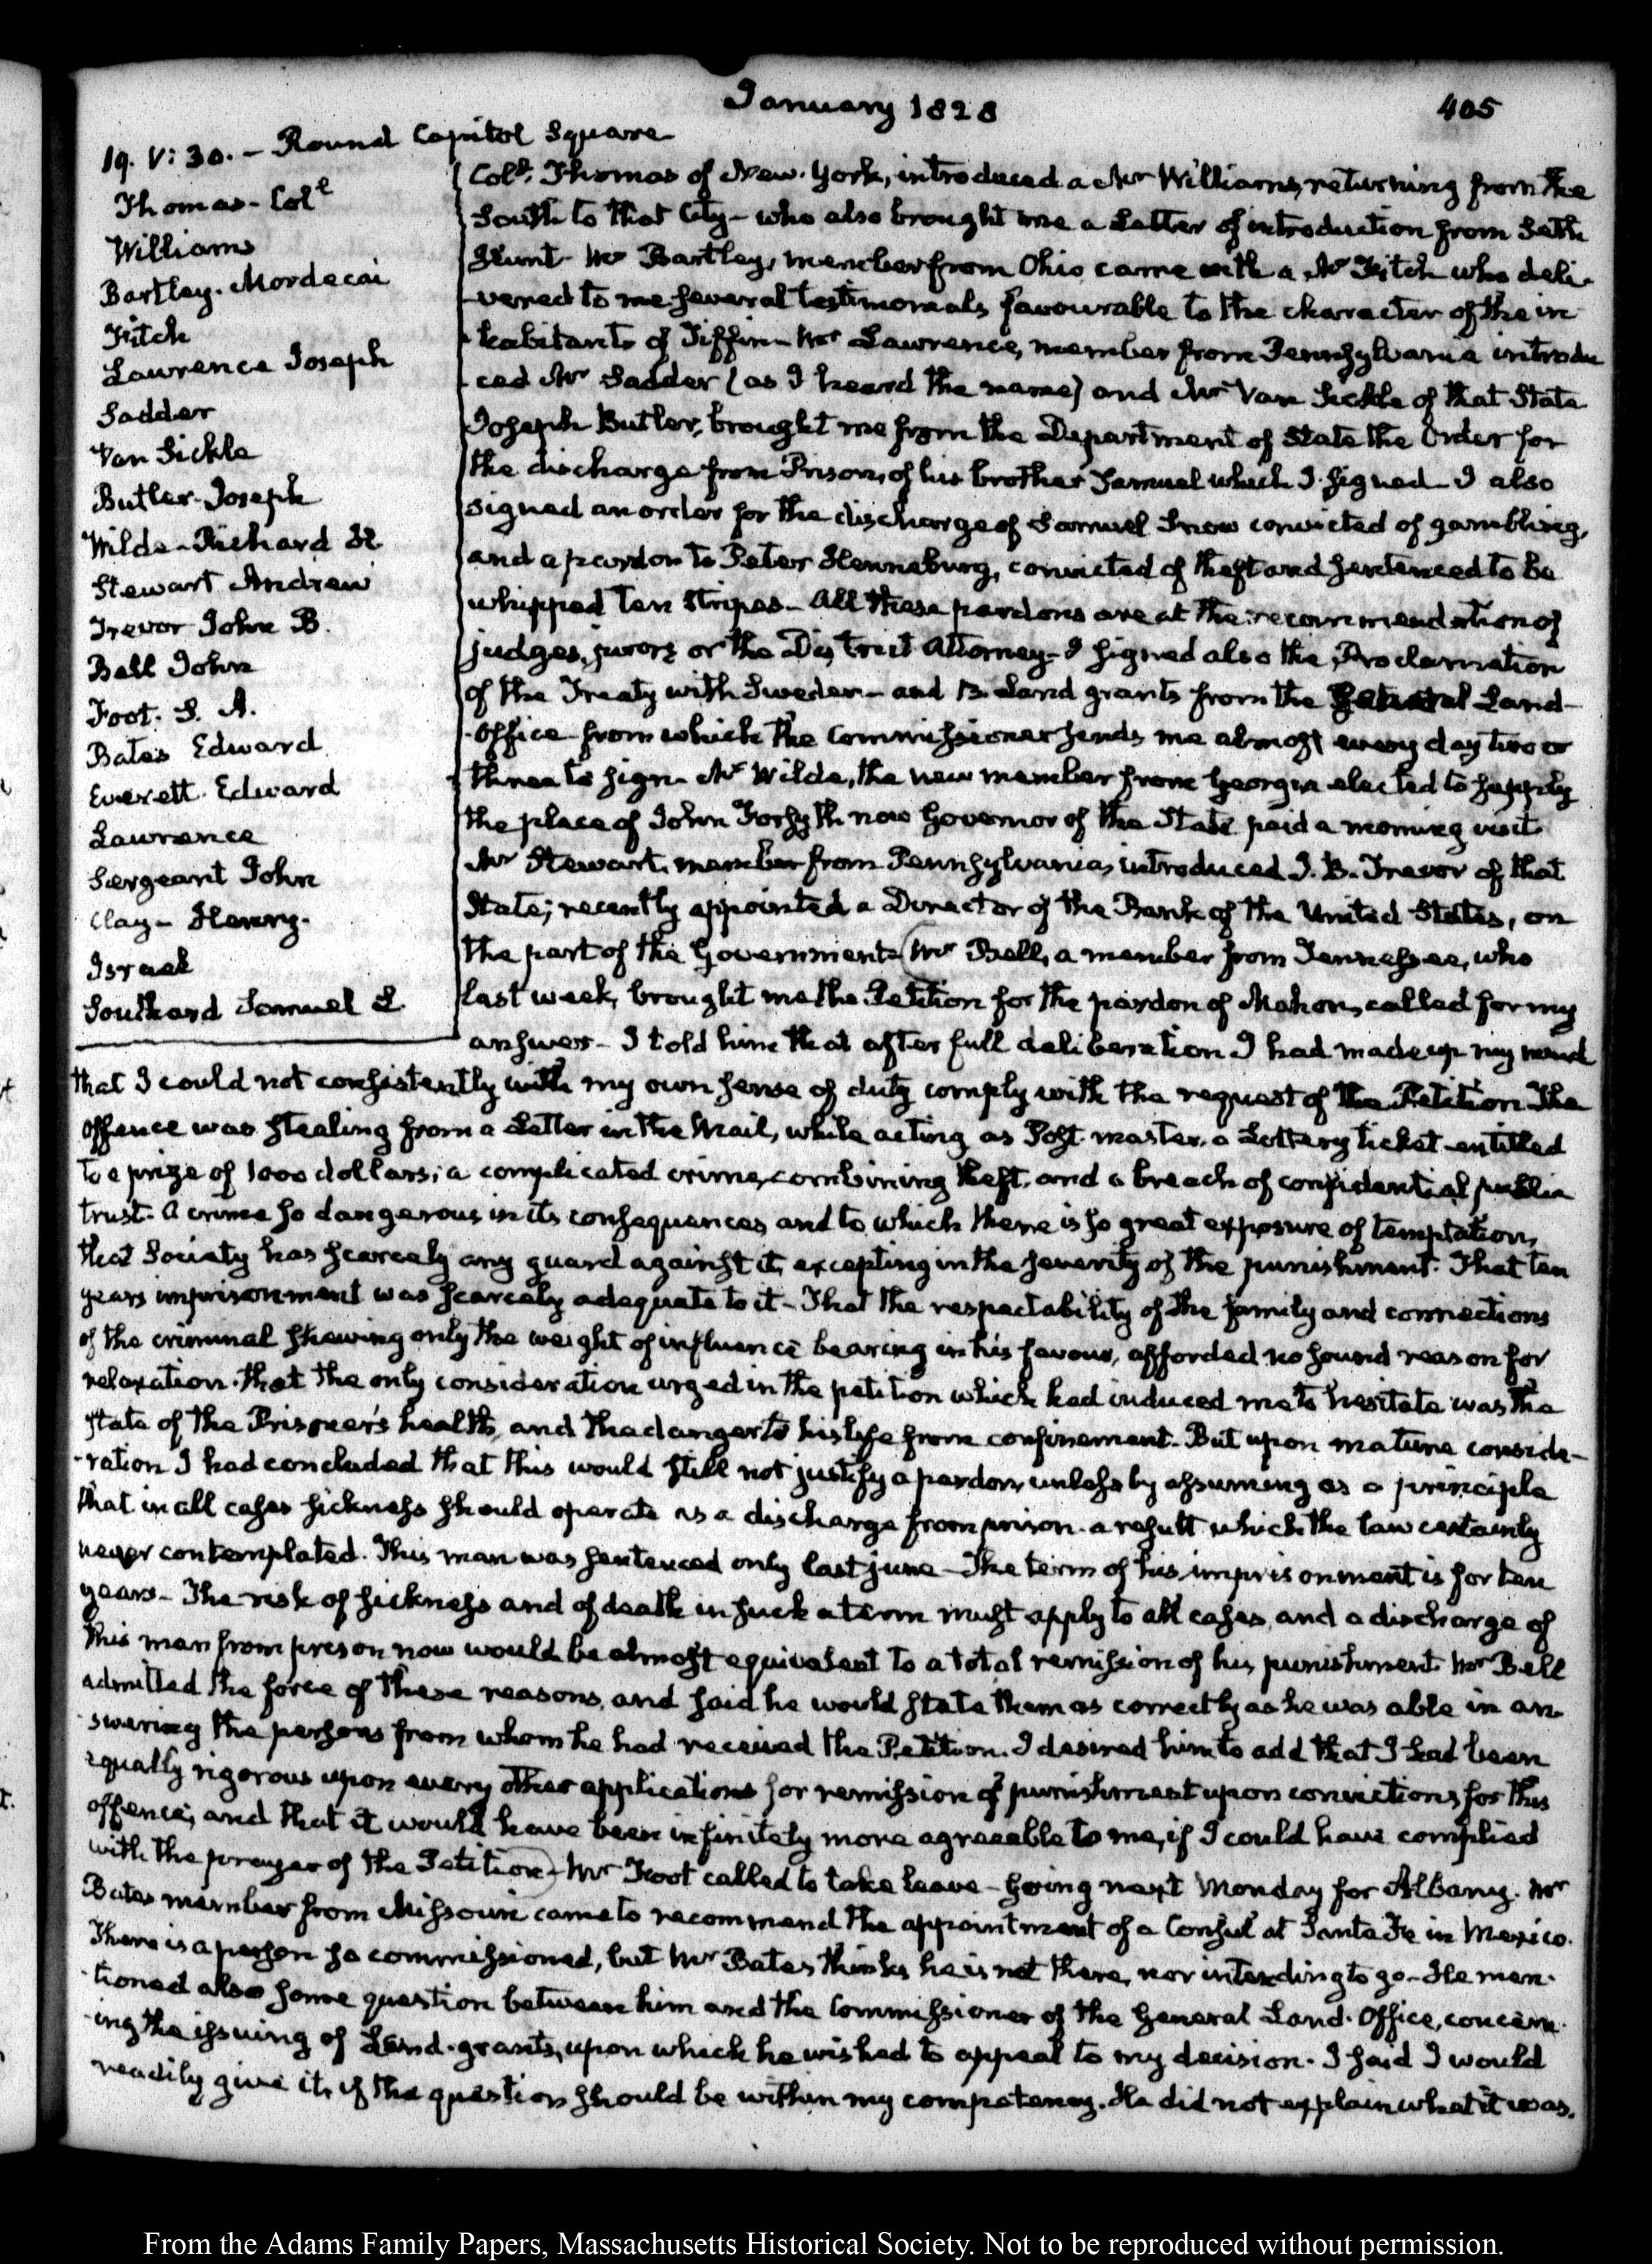 January 1828
405
19. V: 30. – Round Capitol Square
Thomas – Colˡ
Williams
Bartley. Mordecai
Fitch
Lawrence Joseph
Sadder
Van Sickle
Butler. Joseph
Wilde – Richard H.
Stewart Andrew
Trevor John B.
Bell John
Foot. S. A.
Bates Edward
Everett. Edward
Lawrence
Sergeant John
Clay – Henry.
Israel
Southard Samuel L
Colˡ. Thomas of New-York, introduced a Mr Williams, returning from the
South to that City – who also brought me a Letter of introduction from Seth
Hunt. Mr Bartley, member from Ohio came with a Mr Fitch who deli-
-vered to me several testimonials favourable to the character of the in
-habitants of Tiffin – Mr Lawrence, member from Pennsylvania introdu
-ced Mr Sadder (as I heard the name) and Mr Van Sickle of that State
Joseph Butler, brought me from the Department of State the Order for
the discharge from Prison, of his brother Samuel which I signed – I also
signed an order for the discharge of Samuel Snow convicted of gambling,
and a pardon to Peter Henneburg, convicted of theft and sentenced to be
whipped ten stripes – All these pardons are at the recommendation of
judges, jurors or the District Attorney – I signed also the Proclamation
of the Treaty with Sweden – and 13 Land grants from the General Land-
-Office from which the Commissioner sends me almost every day two or
three to sign. Mr Wilde, the new member from Georgia elected to supply
the place of John Forsyth now Governor of the State paid a morning visit.
Mr Stewart. member from Pennsylvania, introduced J. B. Trevor of that
State; recently appointed a Director of the Bank of the United States, on
the part of the Government – (Mr Bell, a member from Tennessee, who
last week, brought me the Petition for the pardon of Mahon, called for my
answer – I told him that after full deliberation I had made up my mind
that I could not consistently with my own sense of duty comply with the request of the Petition The
offence was stealing from a Letter in the Mail, while acting as Post master, a Lottery ticket entitled
to a prize of 1000 dollars; a complicated crime, combining theft, and a breach of confidential public
trust. A crime so dangerous in its consequences, and to which there is so great exposure of temptation,
that Society has scarcely any guard against it, excepting in the severity of the punishment. That ten
years imprisonment was scarcely adequate to it – That the respectability of the family and connections
of the criminal shewing only the weight of influence bearing in his favour, afforded no sound reason for
relaxation. that the only consideration urged in the petition which had induced me to hesitate was the
state of the Prisoner's health, and the danger to his life from confinement. But upon mature conside-
-ration I had concluded that this would still not justify a pardon, unless by assuming as a principle
that in all cases sickness should operate as a discharge from prison. a result which the law certainly
never contemplated. This man was sentenced only last june – The term of his imprisonment is for ten
years – The risk of sickness and of death in such a term must apply to all cases, and a discharge of
this man from prison now would be almost equivalent to a total remission of his punishment. Mr Bell
admitted the force of these reasons, and said he would state them as correctly as he was able in an-
swering the persons from whom he had received the Petition. I desired him to add that I had been
equally rigorous upon every other applications for remission of punishment upon convictions for this
offence; and that it would have been infinitely more agreeable to me, if I could have complied
with the prayer of the Petition) – Mr Foot called to take leave – going next Monday for Albany. Mr
Bates member from Missouri came to recommend the appointment of a Consul at Santa Fe in Mexico.
There is a person so commissioned, but Mr Bates thinks he is not there, nor intending to go – He men-
-tioned also some question between him and the Commissioner of the General Land-Office, concern-
-ing the issuing of Land-grants, upon which he wished to appeal to my decision. I said I would
readily give it, if the question should be within my competency. He did not explain what it was.
From the Adams Family Papers, Massachusetts Historical Society. Not to be reproduced without permission.